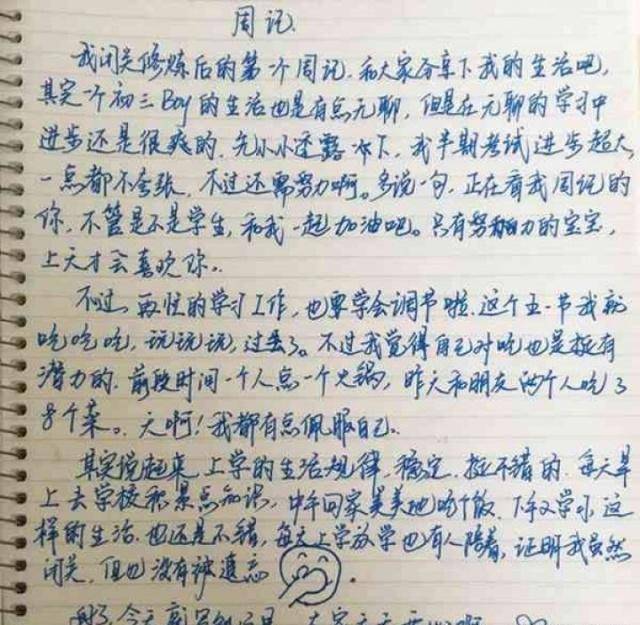 周记.
我闭关修炼后的第一个周记.和大家分享下我的生活吧,
其实一个初三Boy的生活也是有点无聊,但是在无聊的学习中
进步还是很爽的.先小小透露一下,我半期考试进步超大,
一点都不夸张,不过还需努力啊。多说一句,正在看我周记的
你,不管是不是学生,和我一起加油吧。只有努力的宝宝,
上天才会喜欢你。
不过,再忙的学习工作,也要学会调节啦.这个五一节我就
吃吃吃,玩玩玩,过去了。不过我觉得自己对吃也是挺有
潜力的.前段时间一个人点一个火锅,昨天和朋友两个人吃了
8个菜。天啊!我都有点佩服自己.
其实说起来,上学的生活规律.稳定.挺不错的.每天早
上去学校积累点知识,中午回家美美地吃个饭.下午又学习,这
样的生活.也还是不错,每天上学放学也有人陪着,证明我虽然
闭关,但也没有被遗忘.